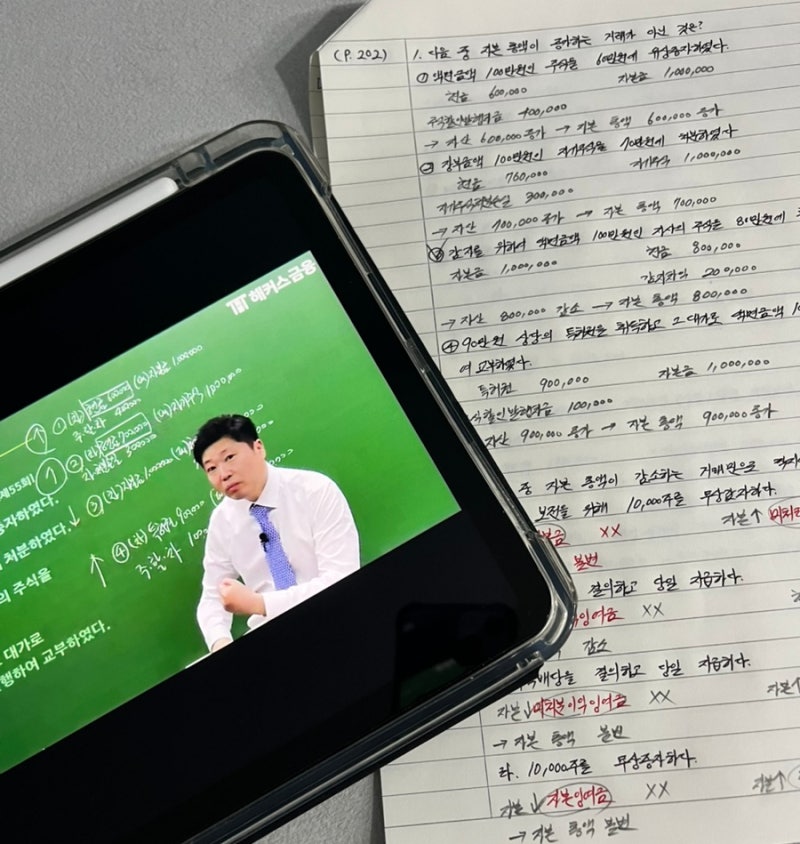 해커스금융
① (차)현금 600,000 (대)자본금 1,000,000
주할차 400,000
제55회
② (차)현금 700,000 (대)자기주식 1,000,000
300,000
증자하였다.
③ (차)자본금 1,000,000
처분하였다.
④ (차)특허권 900,000
주할차 100
의 주식을
대가로
행하여 교부하였다.
(P. 202)
1. 다음 중 자본 총액이 증가하는 거래가 아닌 것은?
① 액면금액 100만원인 주식을 60만원에 유상증자하였다.
현금 600,000 자본금 1,000,000
주식할인발행차금 400,000
→ 자산 600,000 증가 → 자본 총액 600,000 증가
② 장부금액 100만원인 자기주식을 70만원에 처분하였다
현금 700,000 자기주식 1,000,000
자기주식처분손실 300,000
→ 자산 700,000 증가 → 자본 총액 700,000
③ 감자를 위하여 액면금액 100만원인 자사의 주식을 80만원에
자본금 1,000,000 현금 800,000
감자차익 200,000
→ 자산 800,000 감소 → 자본 총액 800,000
④ 90만원 상당의 특허권을 취득하고 그 대가로 액면금액 10
여 교부하였다.
특허권 900,000 자본금 1,000,000
식할인발행차금 100,000
자산 900,000 증가 → 자본 총액 900,000 증가
중 자본 총액이 감소하는 거래만으로
보전을 위해 10,000주를 무상감자하다.
본금 XX 자본↑ 미처리
불변
결의하고 당일 지급하다.
잉여금 XX
감소
배당을 결의하고 당일 지급하다.
자본↓ 미처분이익잉여금 XX 자본↑
→ 자본 총액 불변
라. 10,000주를 무상증자하다.
자본↓ 자본잉여금 XX 자본↑
→ 자본 총액 불변